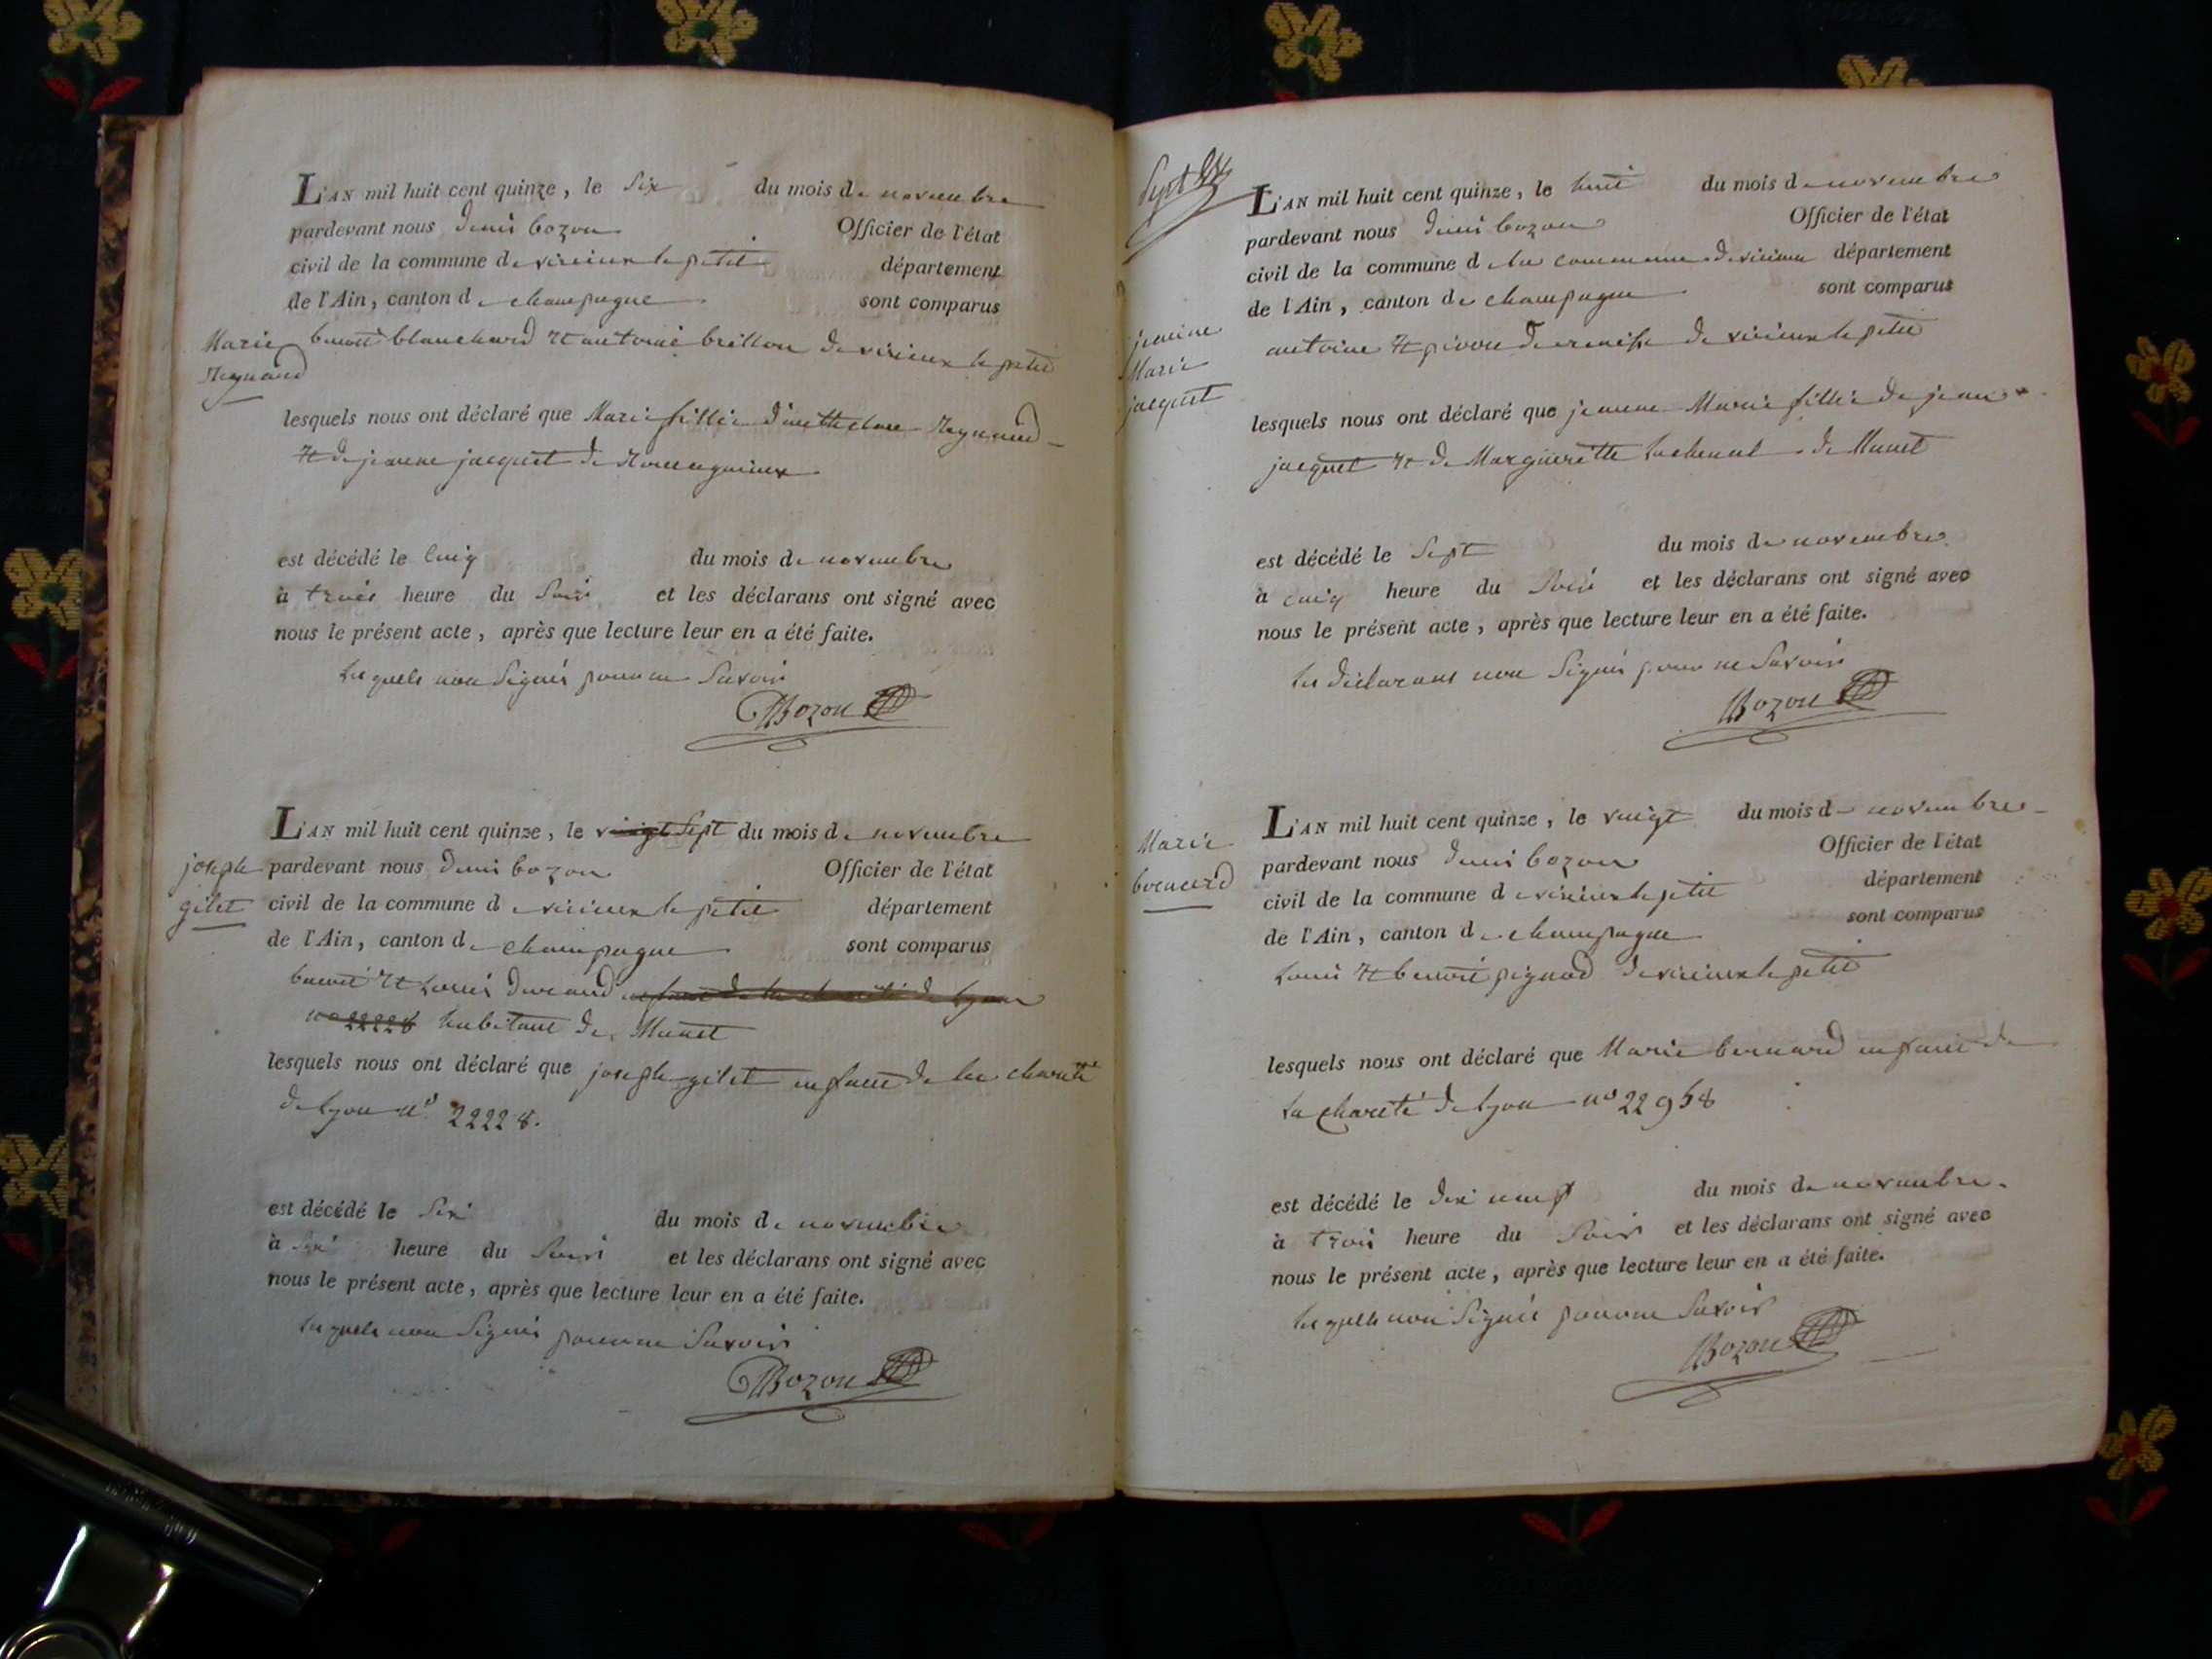 L'AN mil huit cent quinze, le Six du mois de novembre
pardevant nous denis bozon Officier de l'état
civil de la commune de virieux le petit département
de l'Ain, canton de champagne sont comparus
Marie
Reynaud
benoit blanchard et antoine brillon de virieux le petit
lesquels nous ont déclaré que Marie fillie Reynaud
et de jeanne jacquet de
est décédé le Cinq du mois de novembre
à trois heure du Soir et les déclarans ont signé avec
nous le présent acte, après que lecture leur en a été faite.
lesquels non Signés pour ne Savoir
Bozon
L'AN mil huit cent quinze, le vingt Sept du mois de novembre
joseph
gilet
pardevant nous denis bozon Officier de l'état
civil de la commune de virieux le petit département
de l'Ain, canton de champagne sont comparus
benoit et Louis durand enfant de la charité de lyon
no 22228 habitant de Munet
lesquels nous ont déclaré que joseph gilet enfant de la charité
de lyon no 22228.
est décédé le Six du mois de novembre
à Six heure du Soir et les déclarans ont signé avec
nous le présent acte, après que lecture leur en a été faite.
lesquels non Signés pour ne Savoir
Bozon
Sept
L'AN mil huit cent quinze, le huit du mois de novembre
pardevant nous denis bozon Officier de l'état
civil de la commune de la commune de virieux département
de l'Ain, canton de champagne sont comparus
jeanne
Marie
jacquet
antoine et de virieux le petit
lesquels nous ont déclaré que jeanne Marie fillie de jean
jacquet et de Marguerite de Munet
est décédé le Sept du mois de novembre
à cinq heure du Soir et les déclarans ont signé avec
nous le présent acte, après que lecture leur en a été faite.
les déclarans non Signés pour ne Savoir
Bozon
L'AN mil huit cent quinze, le vingt du mois de novembre
Marie
bernard
pardevant nous denis bozon Officier de l'état
civil de la commune de virieux le petit département
de l'Ain, canton de champagne sont comparus
Louis et benoit pignod de virieux le petit
lesquels nous ont déclaré que Marie bernard enfant de
la charité de lyon no 22968
est décédé le dix neuf du mois de novembre
à trois heure du Soir et les déclarans ont signé avec
nous le présent acte, après que lecture leur en a été faite.
lesquels non Signés pour ne Savoir
Bozon